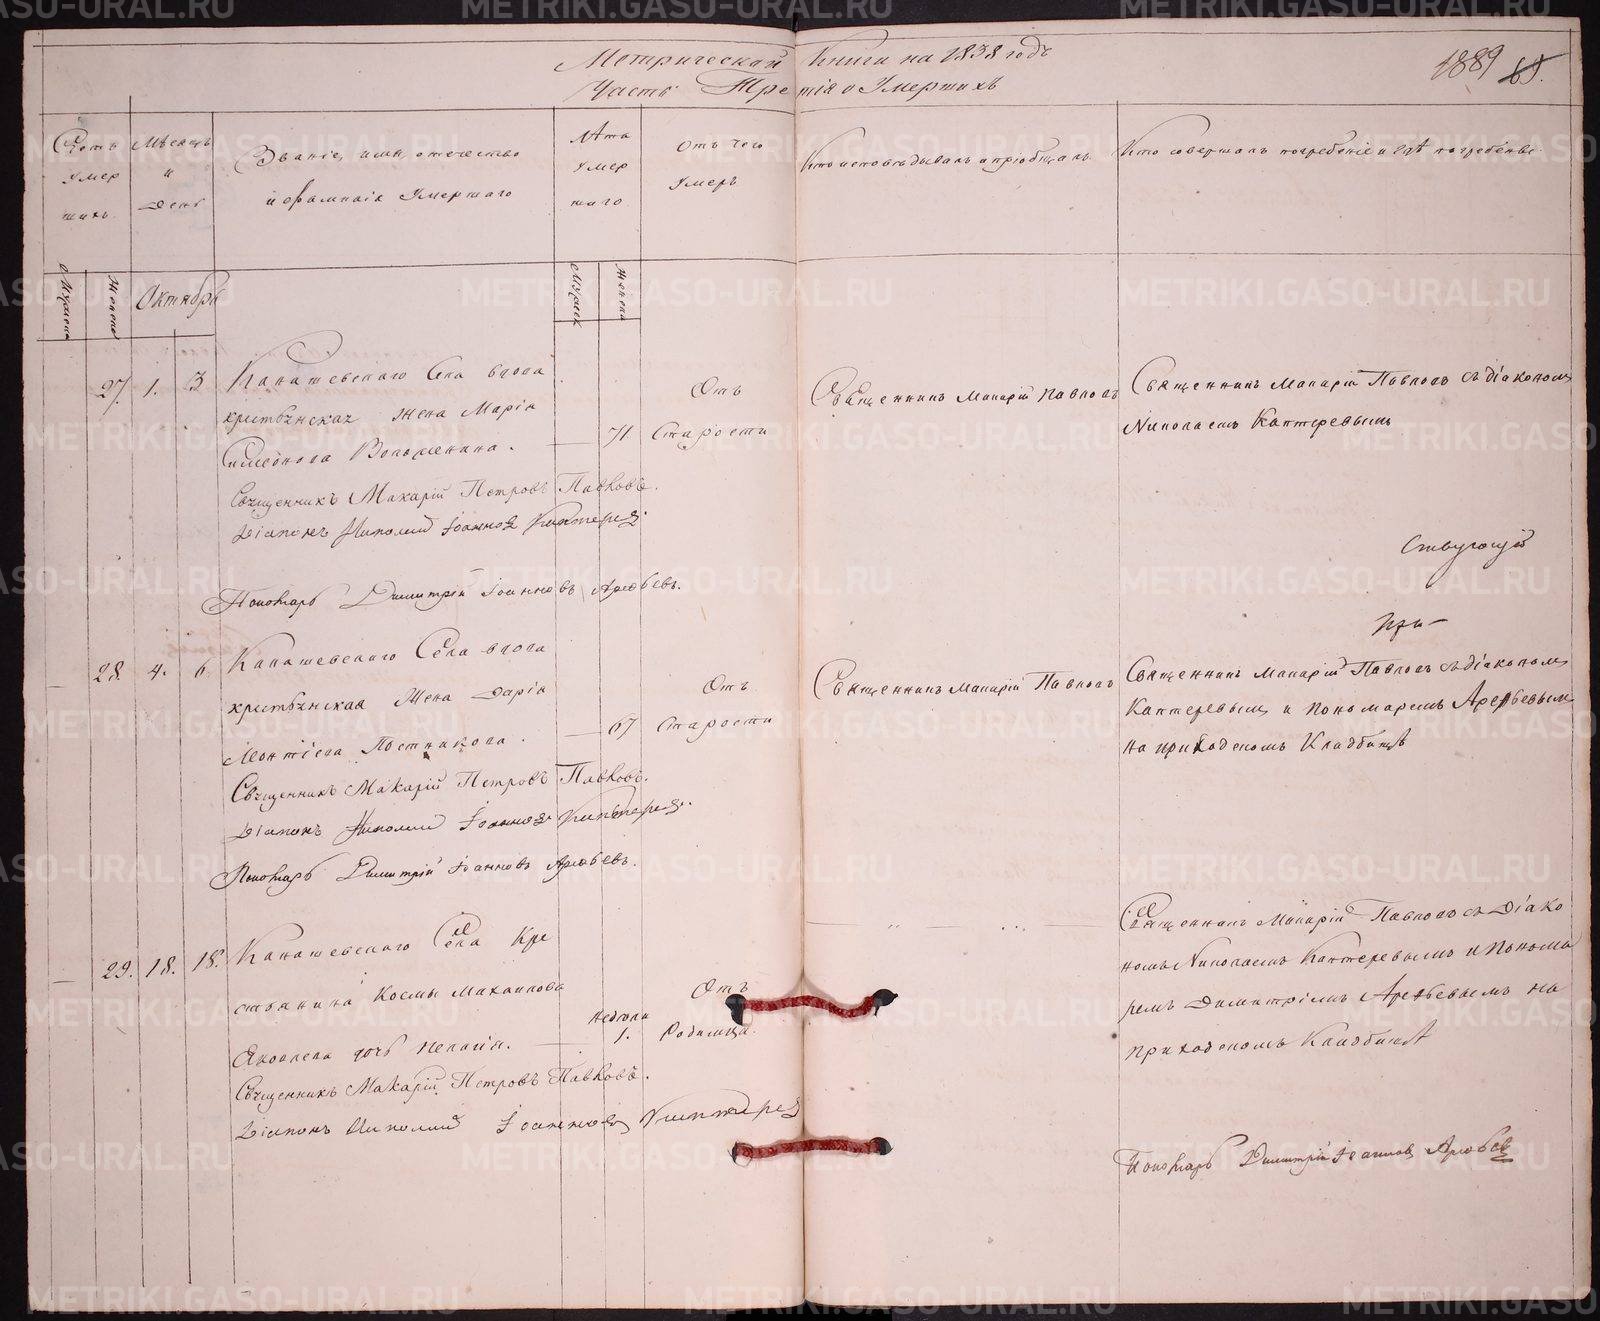 Метрической Книги на 1838 годъ
1889
69.
Часть Третія о Умершихъ
Счетъ умершихъ.
Мѣсяцъ и День
Званіе, имя, отечество
и фамилія Умершаго
Лѣта умершаго
Отъ чего умеръ
Кто исповѣдывалъ и пріобщалъ
Кто совершалъ погребеніе и гдѣ погребены.
Мужеска
Женска
Октябрь
Мужеск
Женска
27. 1. 3 Канашевскаго Села вдова
крестьянская жена Марія
Симеонова Воложенина. — 71
Отъ
Старости
Священникъ Макарій Павловъ
Священникъ Макарій Павловъ съ діакономъ
Николаемъ Каптеревымъ
Священникъ Макарій Петровъ Павловъ.
Діаконъ Николай Іоанновъ Каптеревъ
Пономарь Димитрій Іоанновъ Арефьевъ.
Ствующій
При—
28. 4. 6 Канашевскаго Села вдова
крестьянская Жена Дарія
Леонтіева Постникова. — 67
Отъ
Старости
Священникъ Макарій Павловъ
Священникъ Макарій Павловъ съ діакономъ
Каптеревымъ и пономаремъ Арефьевымъ
на приходскомъ Кладбищѣ
Священникъ Макарій Петровъ Павловъ.
Діаконъ Николай Іоанновъ Каптеревъ.
Пономарь Димитрій Іоанновъ Арефьевъ.
29. 18. 18. Канашевскаго Села Кре
стьянина Космы Михаилова
Яковлева дочь Пелагія. —
недѣли
1.
Отъ
Родимца
Священникъ Макарій Павловъ съ Діако
номъ Николаемъ Каптеревымъ и Понома
ремъ Димитріемъ Арефьевымъ на
приходскомъ Кладбищѣ
Священникъ Макарій Петровъ Павловъ.
Діаконъ Николай Іоанновъ Каптеревъ
Пономарь Димитрій Іоанновъ Арефьевъ
METRIKI.GASO-URAL.RU